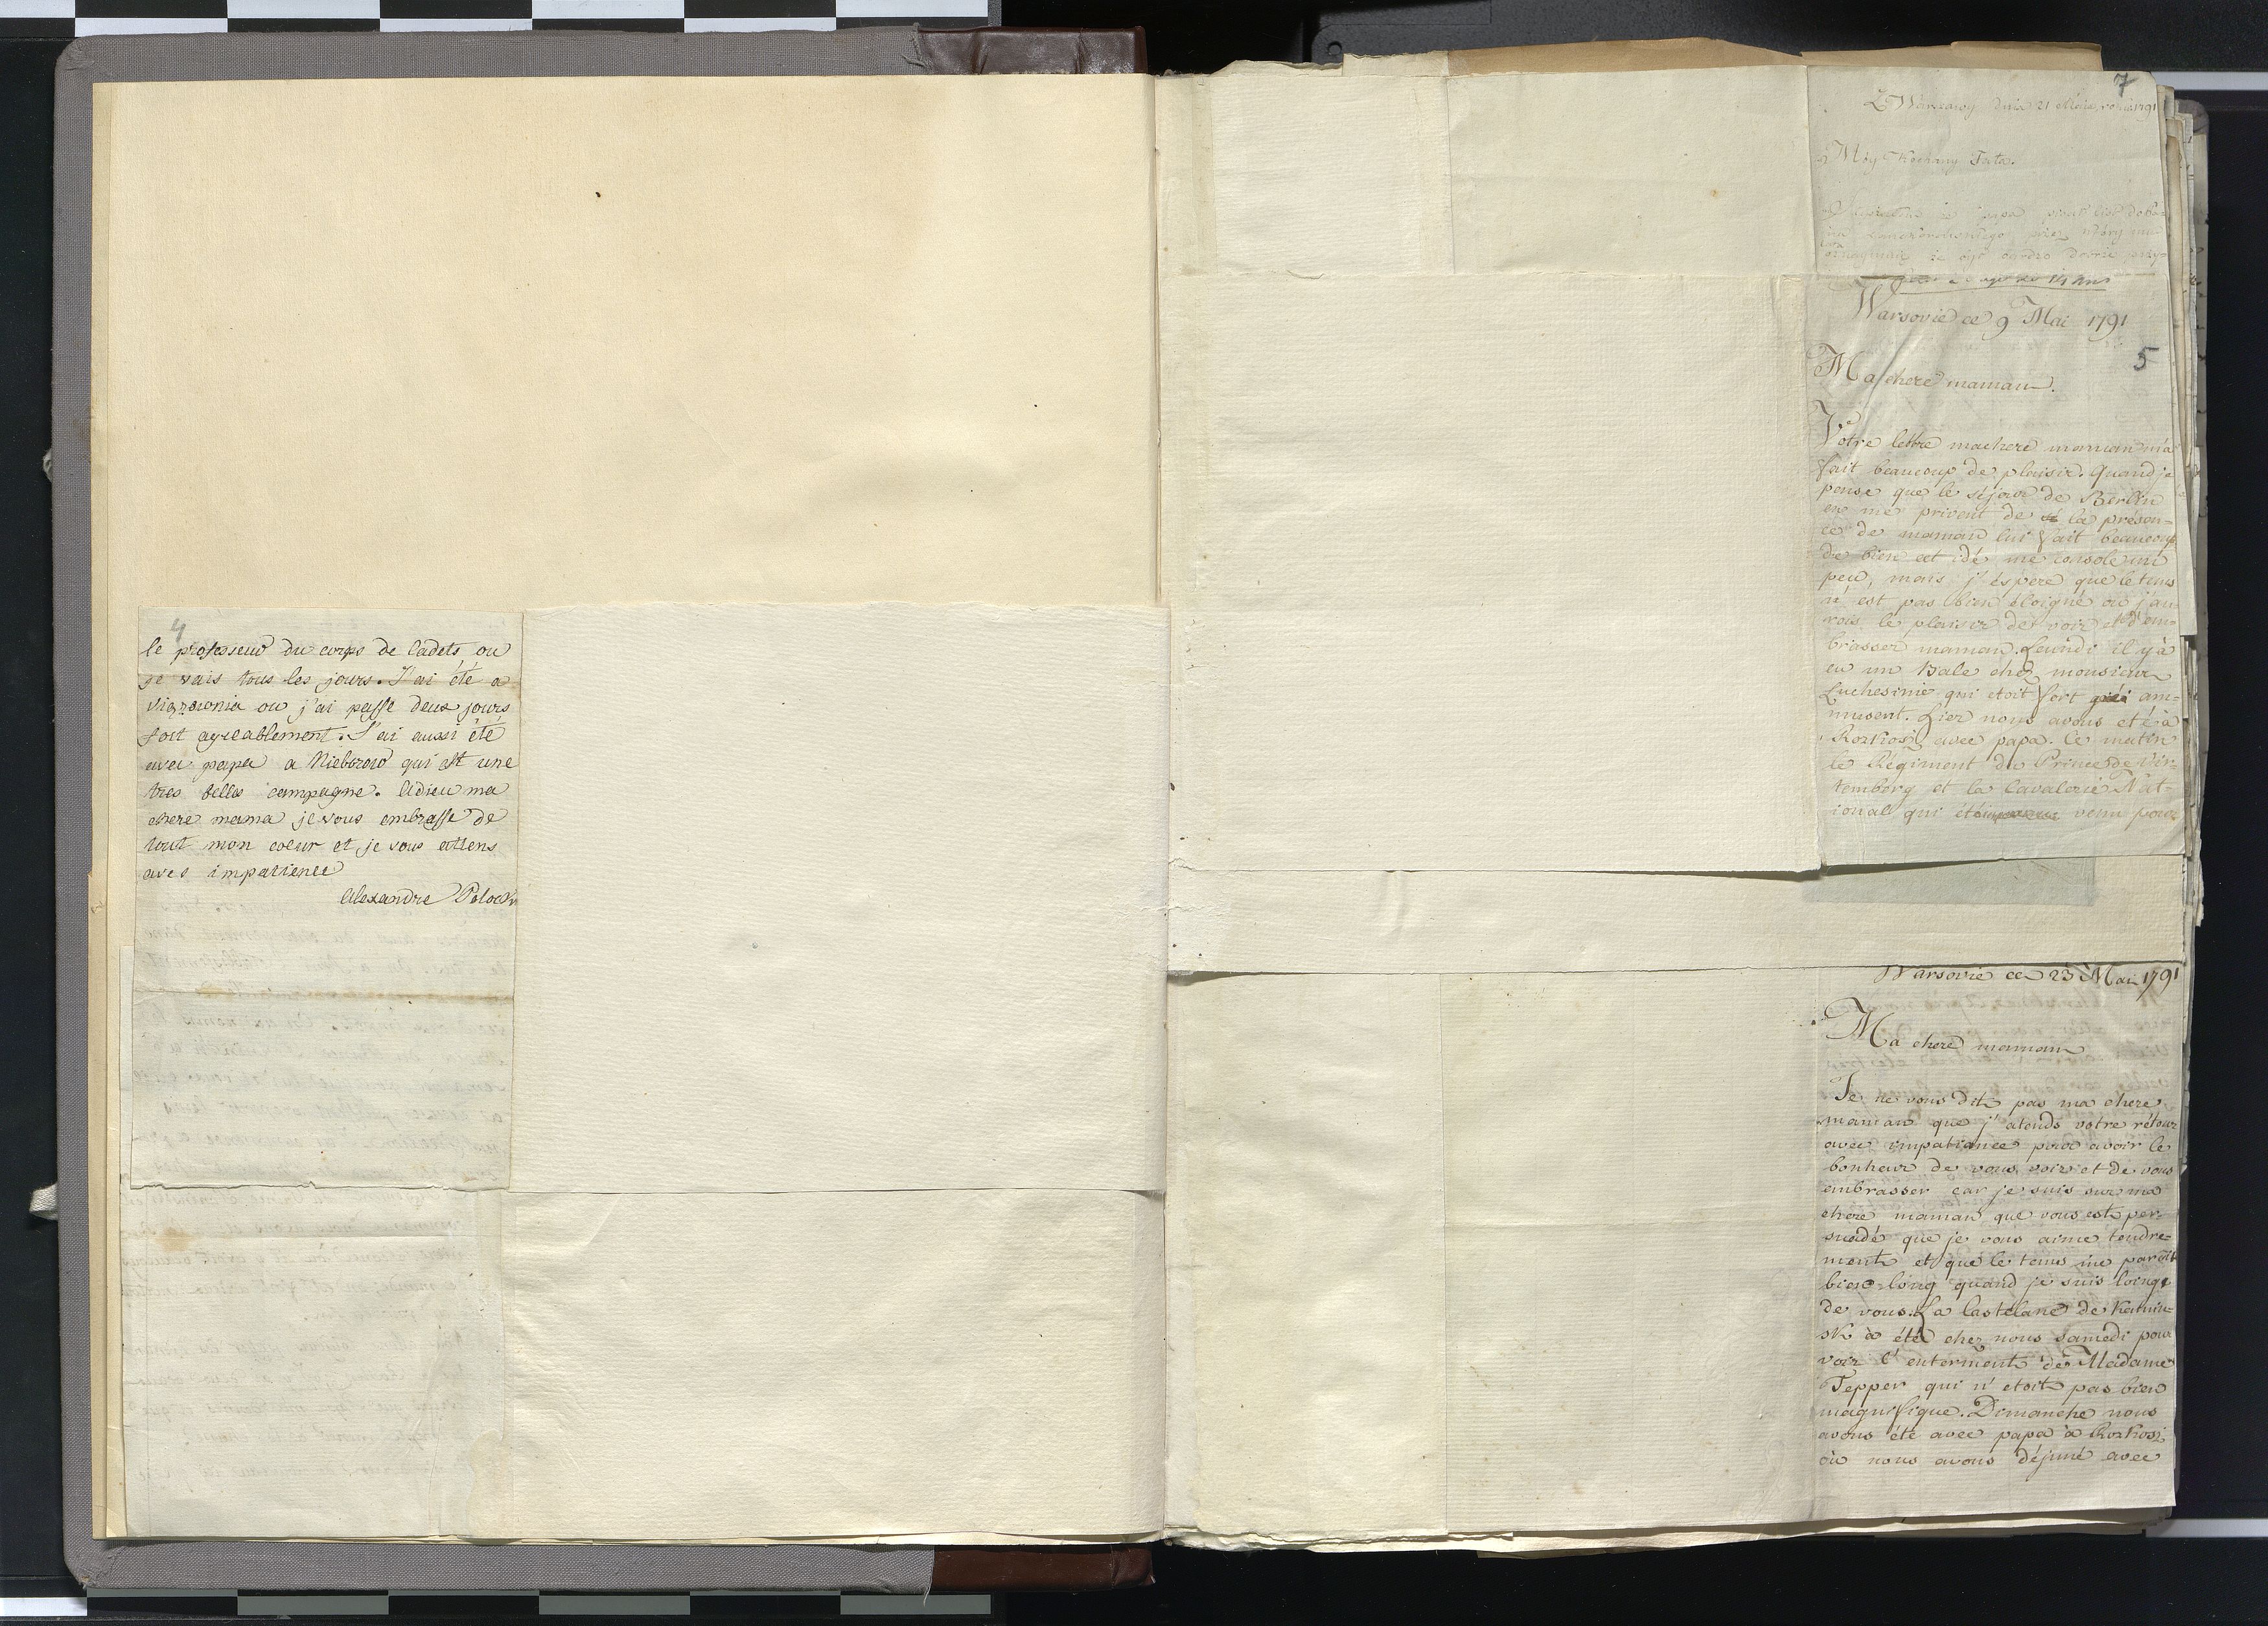 4
le professeur du corps de Cadets ou
je vais tous les jours. J'ai été a
ou j'ai passe deux jours
fort agreablement. J'ai aussi été
avec papa a Nieborow qui est une
tres belle campagne. Adieu ma
chere mama je vous embrasse de
tout mon coeur et je vous attens
avec impatience
Alexandre Potocki
7
Z Warszawy dnia 21 Maia roku 1791
Móy Kochany Tata.
papa pisał list do
go przez który mu
że był bardzo dobrze przy-
age de 14 ans
Warsovie ce 9 Mai 1791
5
Ma chere maman.
Votre lettre machere maman m'a
fait beaucoup de plaisir. Quand je
pense que le séjour de Berlin
en me privent de la présen-
ce de maman lui fait beaucoup
de bien cet idé me console un
peu, mais j'éspere que le tems
n'est pas bien éloigné ou j'au-
rois le plaisir de voir et d'em-
brasser maman. Lundi il y a
eu un Bale chez monsieur
Luchesinie qui etoit fort am-
musent. Hier nous avons eté à
Rozkosz avec papa. Ce matin
le Régiment du Prince de Vir-
temberg et la Cavalerie Nat-
ional qui été venu pour
Warsovie ce 23 Mai 1791
Ma chere maman
Je ne vous dit pas ma chere
maman que j'atends votre rétour
avec impatiance pour avoir le
bonheur de vous voir et de vous
embrasser car je suis sur ma
chere maman que vous est per-
suadé que je vous aime tendre-
ment et que le tems me paroit
bien long quand je suis loinge
de vous. La Castelane de Kamin-
sk à été chez nous samedi pour
voir l'enterment de Madame
Tepper qui n'etoit pas bien
magnifique. Dimanche nous
avons été avec papa à Rozkosz
où nous avons déjuné avec